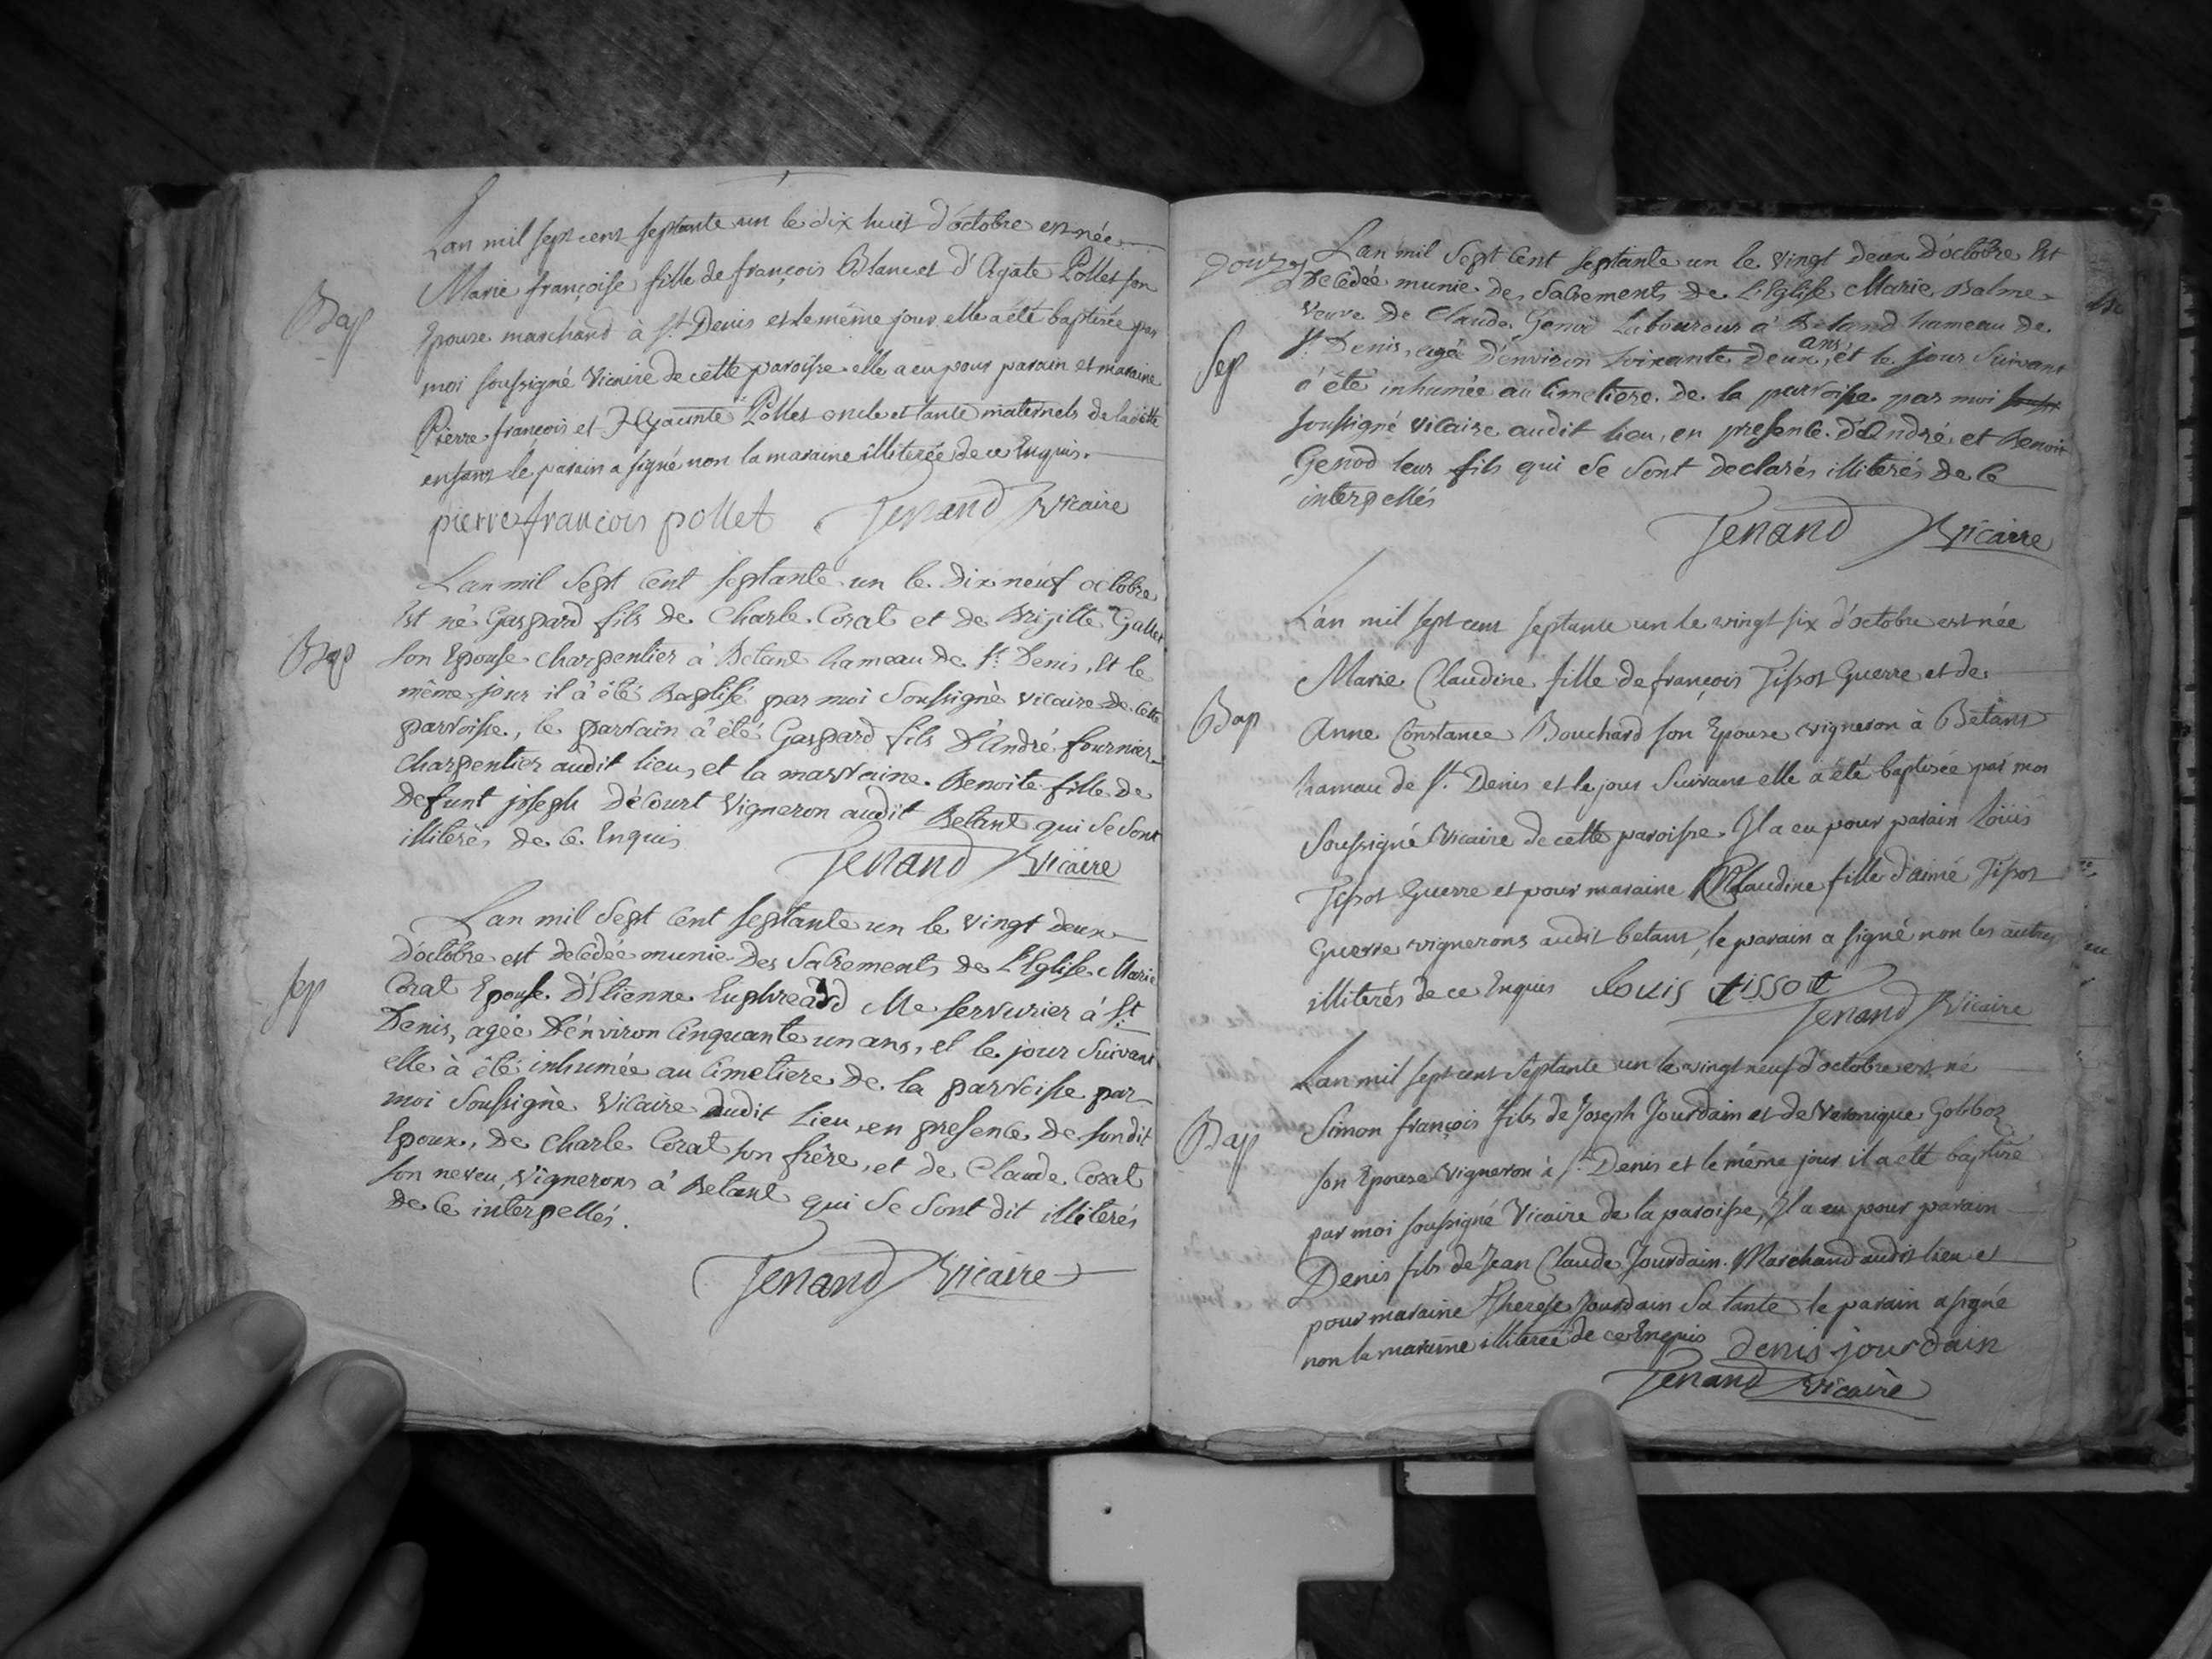 Lan mil sept cent septante un le dix huit d'octobre est née
Bap
Marie françoise fille de françois Blanc et d'Agate Pollet son
Epouse marchand à St. Denis et le même jour elle a été baptisée par
moi soussigné Vicaire de cette paroisse elle a eu pour parain et maraine
Pierre françois et Hyacinte Pollet oncle et tante maternels de la ditte
enfant le parain a signé non la maraine illiterée de ce Enquis.
pierre françois pollet Tenand Vicaire
Lan mil Sept Cent septante un le Dix neuf octobre
Est né Gaspard fils de Charle Corat et de Brigitte Gallet
Bap
son Epouse charpentier à Betant hameau de St. Denis, Et le
même jour il à été Baptisé par moi Soussigné vicaire de cette
parroisse, le parrain à été Gaspard fils D'André fournier
charpentier audit lieu, et la marraine Benoite fille de
Defunt joseph Décourt Vigneron audit Betant qui se sont
illiterés de ce Enquis
Tenand Vicaire
Lan mil Sept Cent septante un le vingt deux
D'octobre est decedée munie Des Sacrements de L'Eglise Marie
Sep
Corat Epouse D'Etienne Euphreard Me serrurier à St.
Denis, agée D'environ Cinquante un ans, et le jour Suivant
elle à été inhumée au Cimetiere De la parroisse par
moi Soussigné Vicaire audit Lieu, en presence De son dit
Epoux, De Charle Corat son frère, et de Claude Corat
son neveu, Vignerons à Betant qui Se Sont dit illiterés
De ce interpellés.
Tenand Vicaire
Lan mil Sept Cent septante un le Vingt Deux D'octobre Est
Decedée munie Des Sacrements De L'Eglise Marie Balme
Veuve De Claude Genod Laboureur à Betand hameau De
Sep
St. Denis, agée D'environ Soixante deux ans, et le jour Suivant
à été inhumée au Cimetiere De la parroisse par moi
soussigné Vicaire audit lieu, en presence D'André et Benoit
Genod leur fils qui Se Sont declarés illiterés De ce
interpellés
Tenand Vicaire
L'an mil sept cent septante un le vingt six d'octobre est née
Marie Claudine fille de françois Tissot Guerre et de
Bap
Anne Constance Bouchard son Epouse vigneron à Betant
hameau de St. Denis et le jour Suivant elle a été baptisée par moi
Soussigné Vicaire de cette paroisse Il a eu pour parain Loüis
Tissot Guerre et pour maraine Claudine fille d'aimé Tissot
Guerre vignerons audit betant, le parain a signé non les autres
illiterés de ce Enquis Louis tissot
Tenand Vicaire
Lan mil sept cent Septante un le vingt neuf d'octobre est né
Simon françois fils de Joseph Jourdain et de Veronique Gobboz
Bap
son Epouse Vigneron à St. Denis et le même jour il a été baptisé
par moi soussigné Vicaire de la paroisse, Il a eu pour parain
Denis fils de Jean Claude Jourdain Marchand audit lieu et
pour maraine Therese Jourdain Sa tante le parain a signé
non la maraine illiterée de ce Enquis denis jourdain
Tenand Vicaire